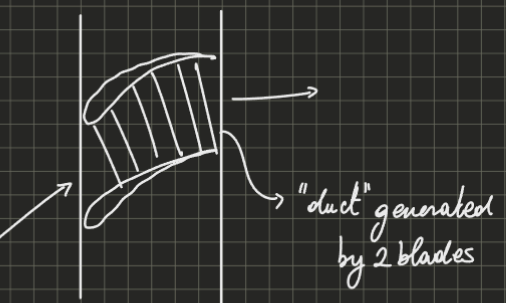 "duct" generated
by 2 blades